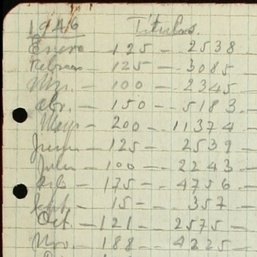 1946 Títulos
Enero - 125 - 2538
Febrero 125 - 3085
Mzo. - 100 - 2345
Abr. - 150 - 5183
Mayo - 200 - 11374
Junio - 125 - 2539
Julio - 100 - 2243
- 175 - 4756
Sept - 15 - 357
Oct - 121 - 2575
Nov. - 188 - 4225